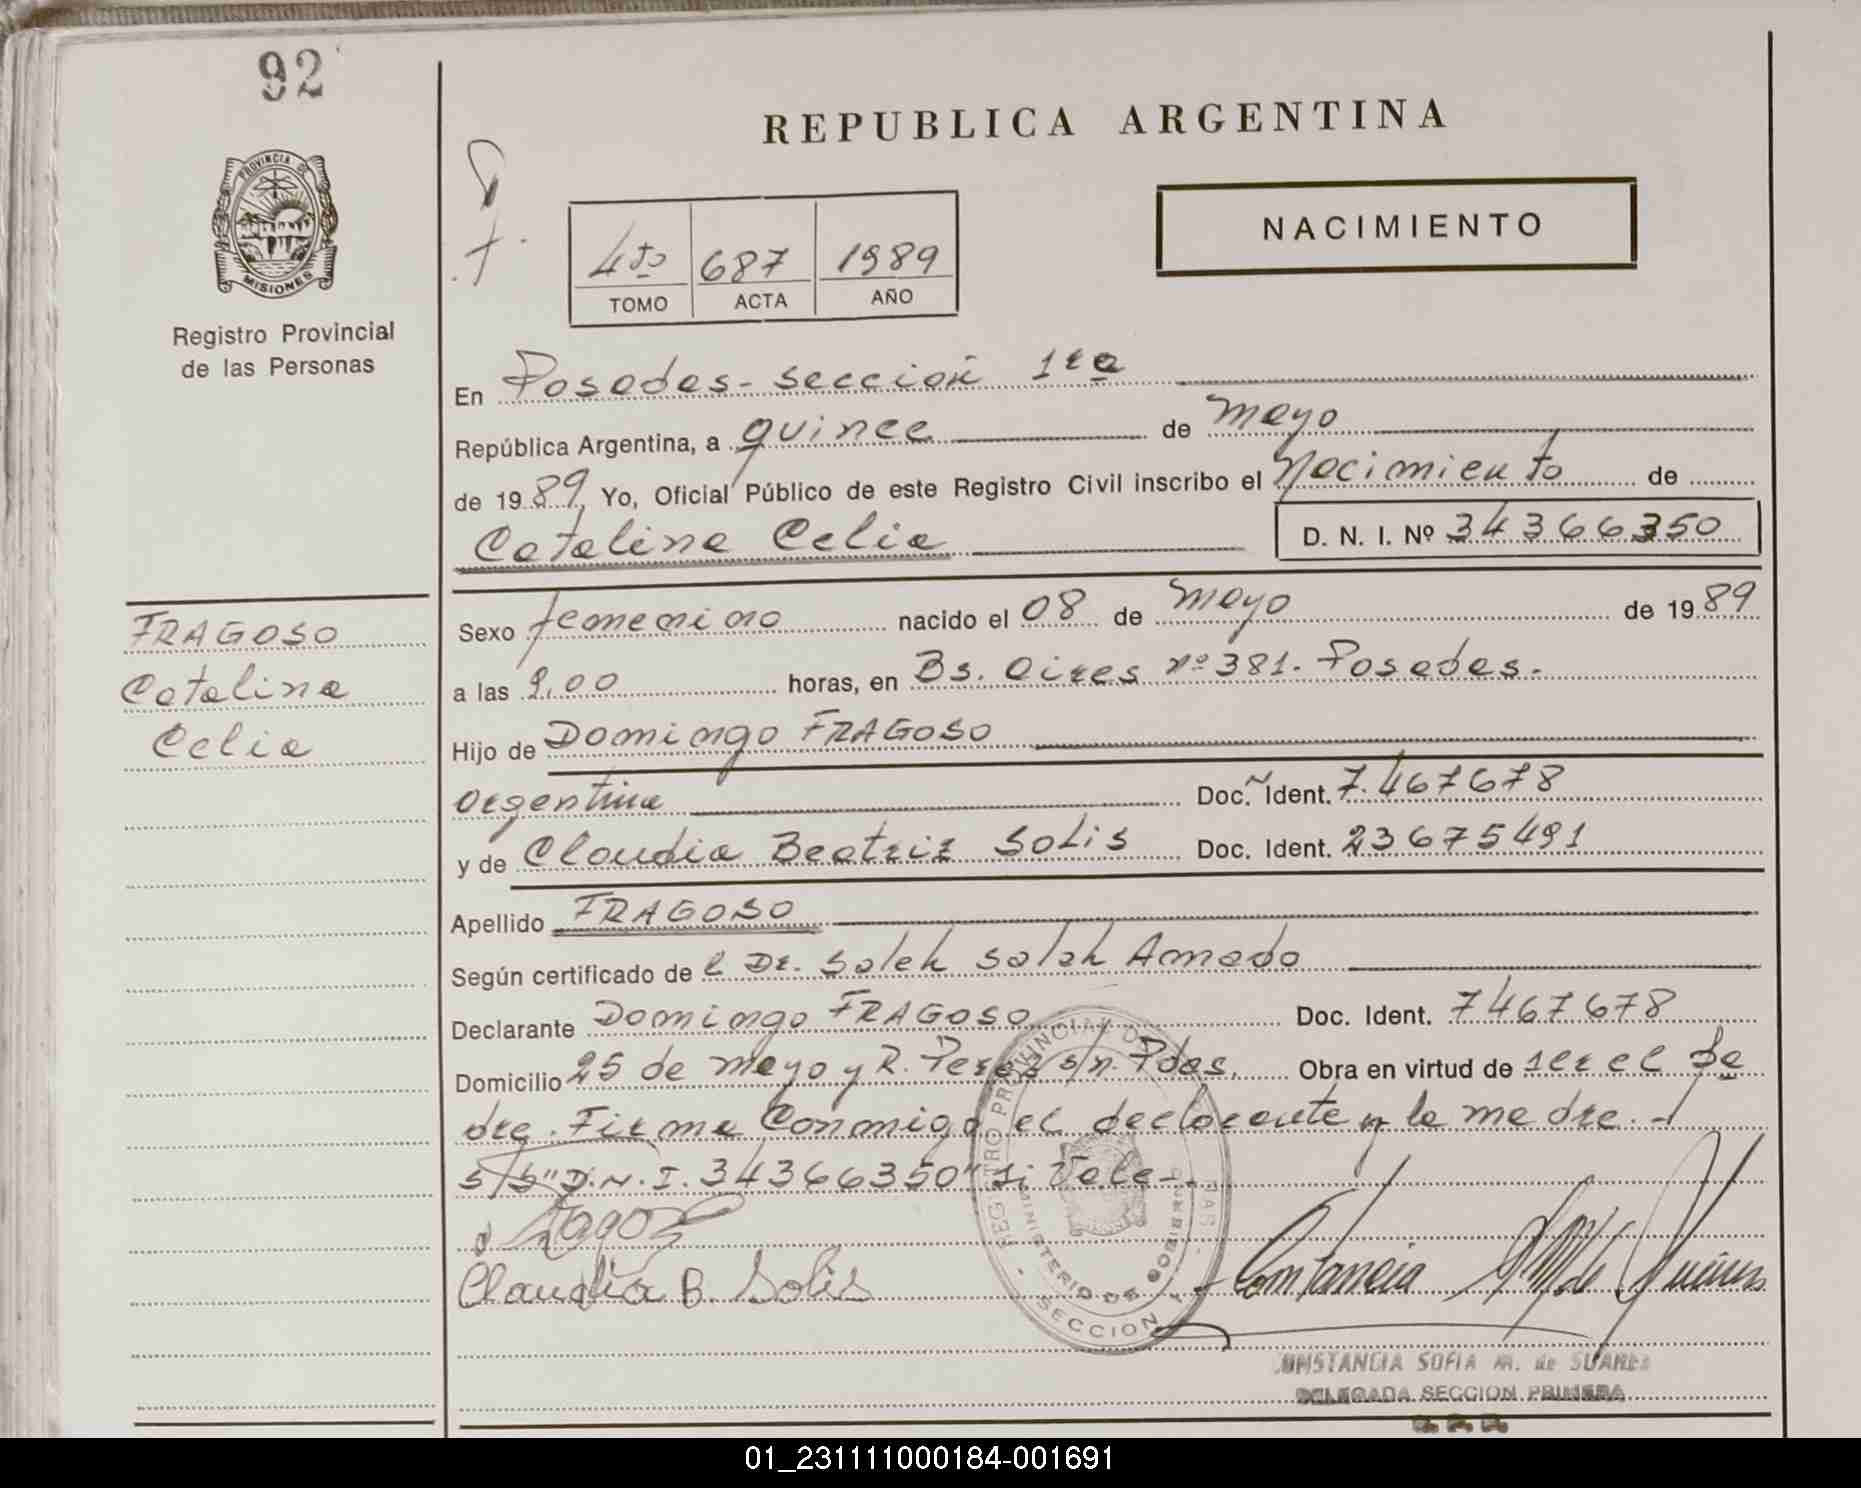 92
REPUBLICA ARGENTINA
PROVINCIA DE MISIONES
Registro Provincial
de las Personas
4to 687 1989
TOMO ACTA AÑO
NACIMIENTO
En Posadas - sección 1ra
República Argentina, a quince de mayo
de 1989, Yo, Oficial Público de este Registro Civil inscribo el Nacimiento de
Catalina Celia D. N. I. Nº 34366350
FRAGOSO
Catalina
Celia
Sexo femenino nacido el 08 de mayo de 1989
a las 9,00 horas, en Bs. Aires nº 381. Posadas.
Hijo de Domingo FRAGOSO
Argentina Doc. Ident. 7.467678
y de Claudia Beatriz SOLIS Doc. Ident. 23675491
Apellido FRAGOSO
Según certificado de l Dr. Saleh Salah Amado
Declarante Domingo FRAGOSO Doc. Ident. 7467678
Domicilio 25 de mayo y R. Perez s/n. Pdas. Obra en virtud de ser el pa
dre. Firma conmigo el declarante y la madre. -
s/b "D.N.I. 34366350" si Vale -
Claudia B. Solis
REGISTRO PROVINCIAL DE LAS
MINISTERIO DE GOBIERNO
SECCION 1
CONSTANCIA SOFIA M. de SUAREZ
DELEGADA SECCION PRIMERA
01_231111000184-001691